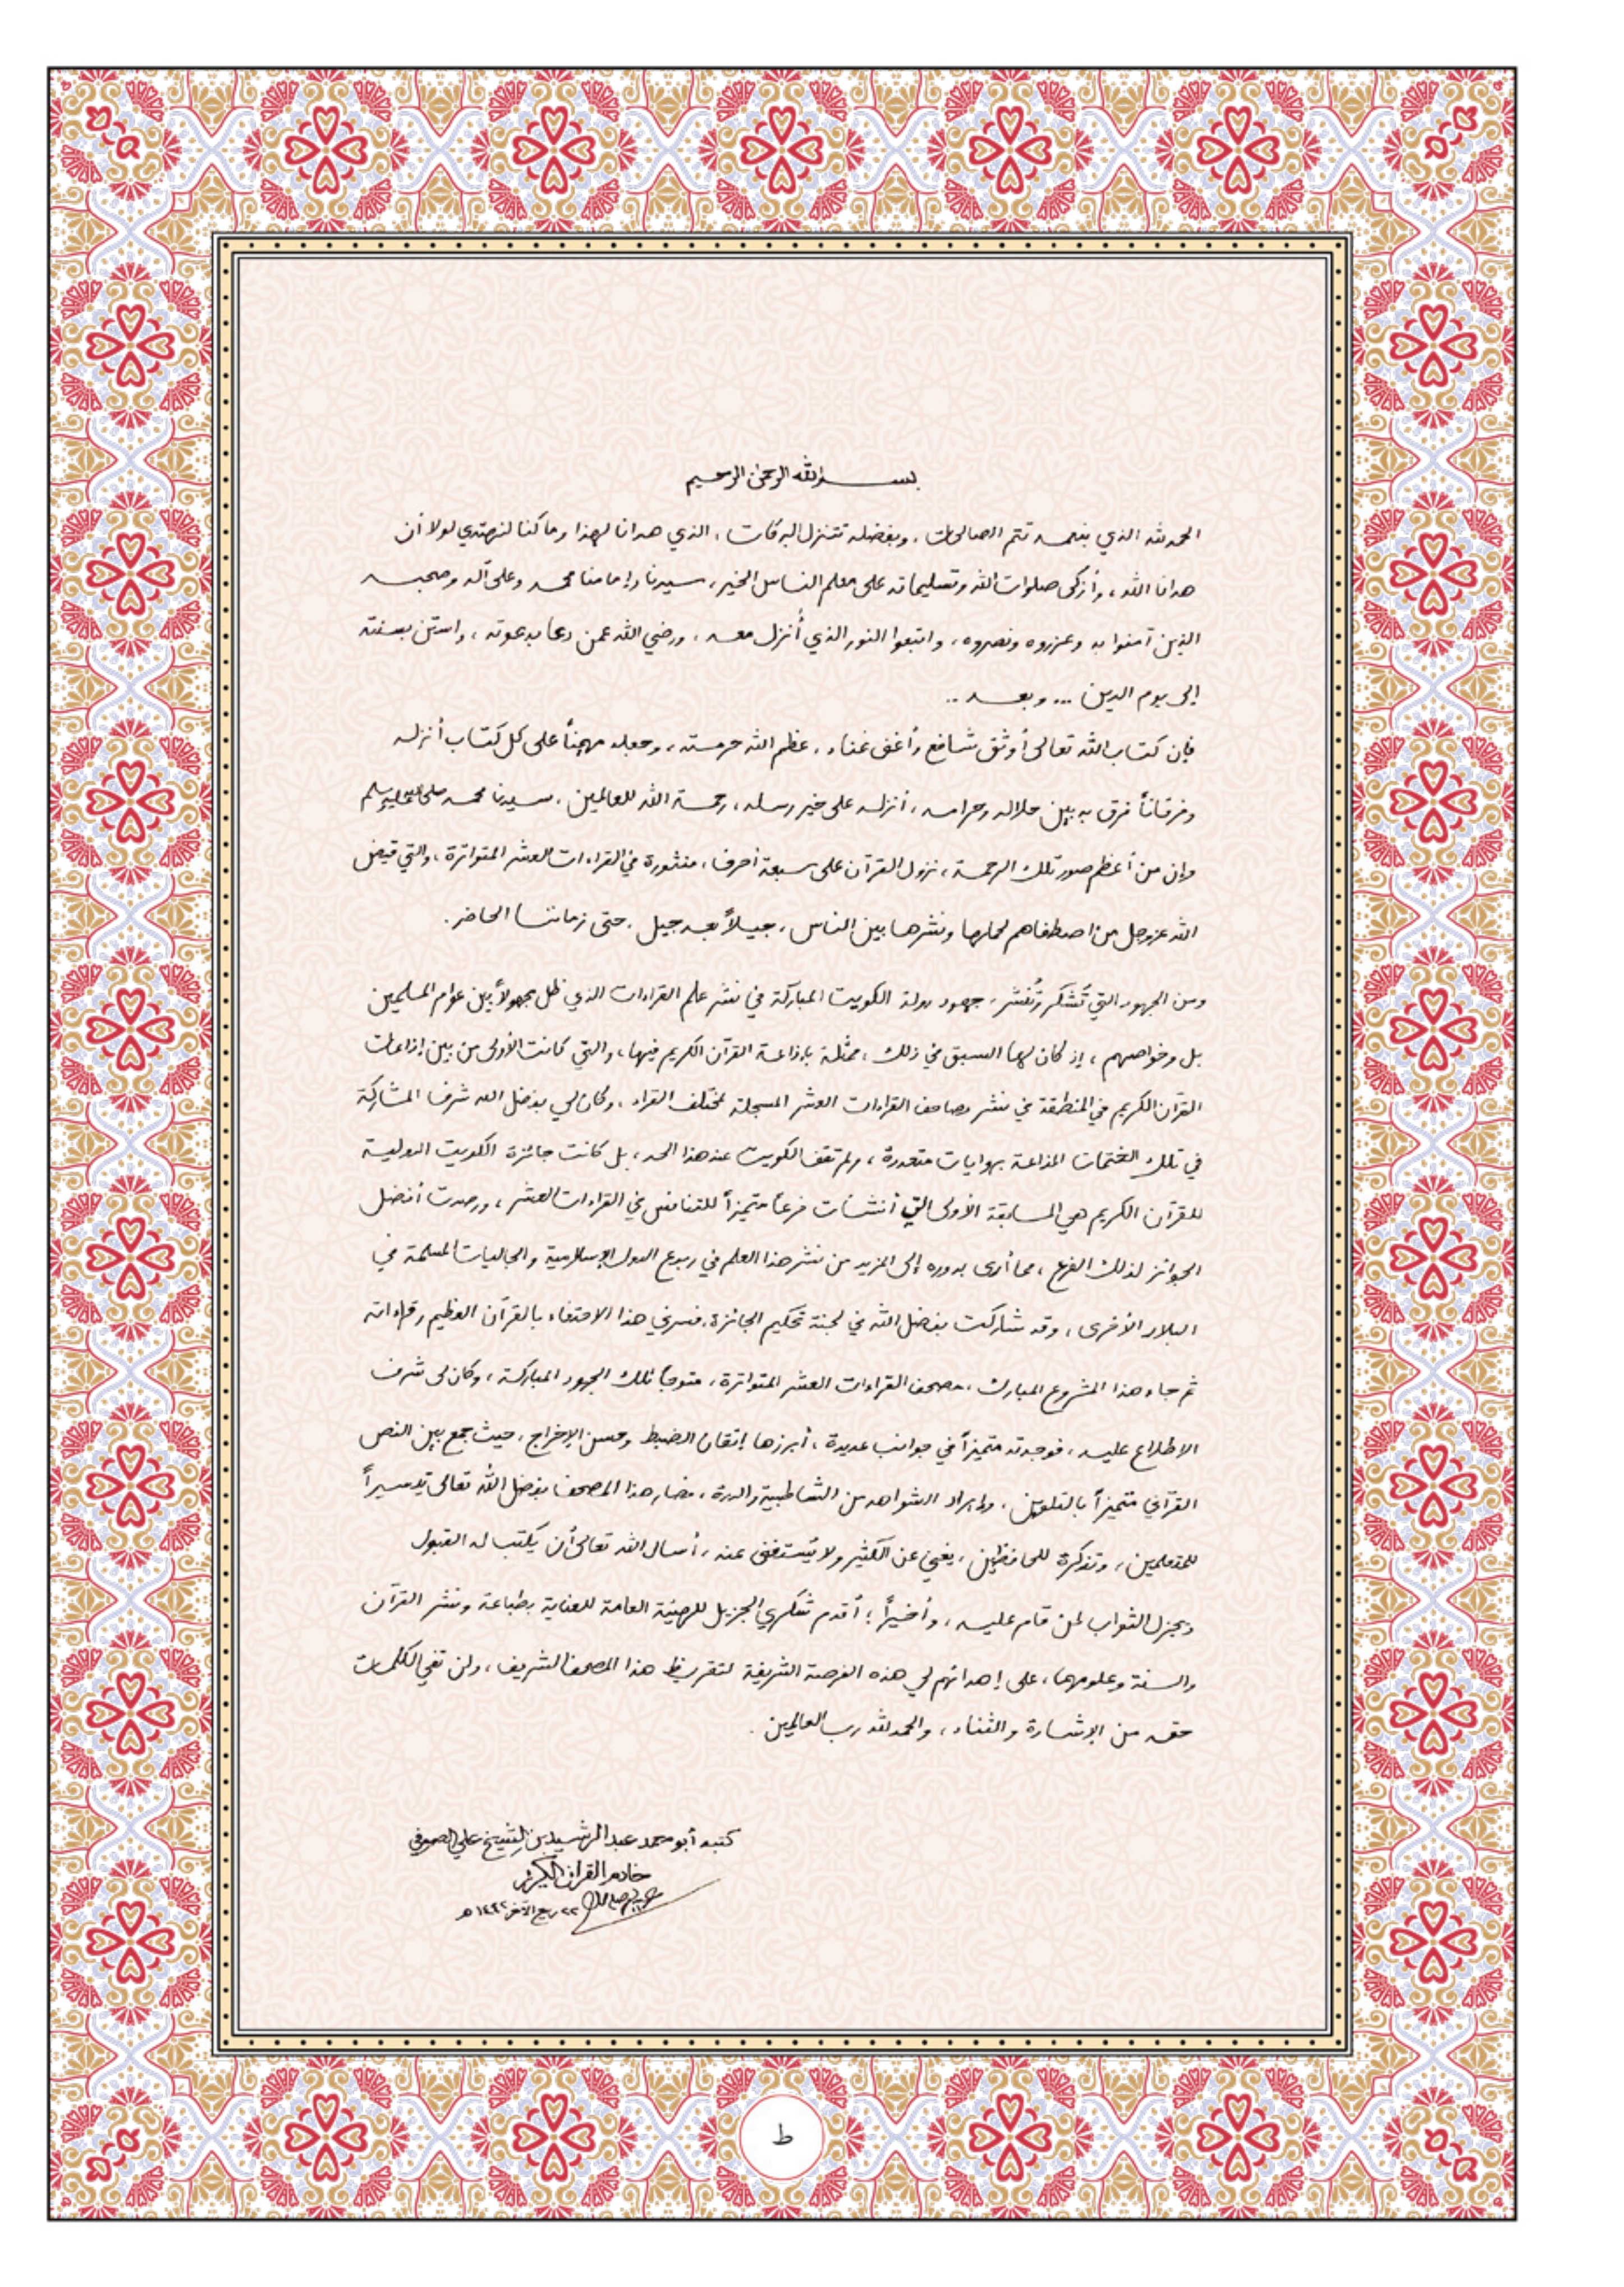 بسم الله الرحمن الرحيم
الحمد لله الذي بنعمته تتم الصالحات، وبفضله تتنزل البركات، الذي هدانا لهذا وما كنا لنهتدي لولا أن
هدانا الله، وأزكى صلوات الله وتسليماته على معلم الناس الخير، سيدنا وإمامنا محمد وعلى آله وصحبه
الذين آمنوا به وعزروه ونصروه، واتبعوا النور الذي أُنزل معه، ورضي الله عمن دعا بدعوته، واستن بسنته
إلى يوم الدين ... وبعد ..
فإن كتاب الله تعالى أوثق شافع وأغنى غناء، عظم الله حرمته، وجعله مهيمناً على كل كتاب أنزله
وفرقاناً فرق به بين حلاله وحرامه، أنزله على خير رسله، رحمة الله للعالمين، سيدنا محمد صلى الله عليه وسلم
وإن من أعظم صور تلك الرحمة، نزول القرآن على سبعة أحرف، منثورة في القراءات العشر المتواترة، والتي قيض
الله عزوجل من اصطفاهم لحملها ونشرها بين الناس، جيلاً بعد جيل، حتى زماننا الحاضر.
ومن الجهود التي تُشكر وتُنشر، جهود دولة الكويت المباركة في نشر علم القراءات الذي ظل مجهولاً بين عوام المسلمين
بل وخواصهم، إذ كان لها السبق في ذلك، ممثلة بإذاعة القرآن الكريم فيها، والتي كانت الأولى من بين إذاعات
القرآن الكريم في المنطقة في نشر مصاحف القراءات العشر المسجلة لمختلف القراء، وكان لي بفضل الله شرف المشاركة
في تلك الختمات المذاعة بروايات متعددة، ولم تقف الكويت عند هذا الحد، بل كانت جائزة الكويت الدولية
للقرآن الكريم هي المسابقة الأولى التي أنشأت فرعاً متميزاً للتنافس في القراءات العشر، ورصدت أفضل
الجوائز لذلك الفرع، مما أدى بدوره إلى المزيد من نشر هذا العلم في ربوع الدول الإسلامية والجاليات المسلمة في
البلاد الأخرى، وقد شاركت بفضل الله في لجنة تحكيم الجائزة، فسرني هذا الاحتفاء بالقرآن العظيم وقراءاته
ثم جاء هذا المشروع المبارك، مصحف القراءات العشر المتواترة، متوجاً تلك الجهود المباركة، وكان لي شرف
الاطلاع عليه، فوجدته متميزاً في جوانب عديدة، أبرزها إتقان الضبط وحسن الإخراج، حيث جمع بين النص
القرآني متميزاً بالتلوين، وإيراد الشواهد من الشاطبية والدرة، فصار هذا المصحف بفضل الله تعالى تيسيراً
للمتعلمين، وتذكرة للحافظين، يغني عن الكثير ولا يُستغنى عنه، أسأل الله تعالى أن يكتب له القبول
ويجزل الثواب لمن قام عليه، وأخيراً؛ أقدم شكري الجزيل للهيئة العامة للعناية بطباعة ونشر القرآن
والسنة وعلومهما، على إهدائهم لي هذه الفرصة الشريفة لتقريظ هذا المصحف الشريف، ولن تفي الكلمات
حقه من الإشادة والثناء، والحمد لله رب العالمين.
كتبه أبو محمد عبدالرشيد بن الشيخ علي الصوفي
خادم القرآن الكريم
٢٢ ربيع الآخر ١٤٤٢ هـ
ط